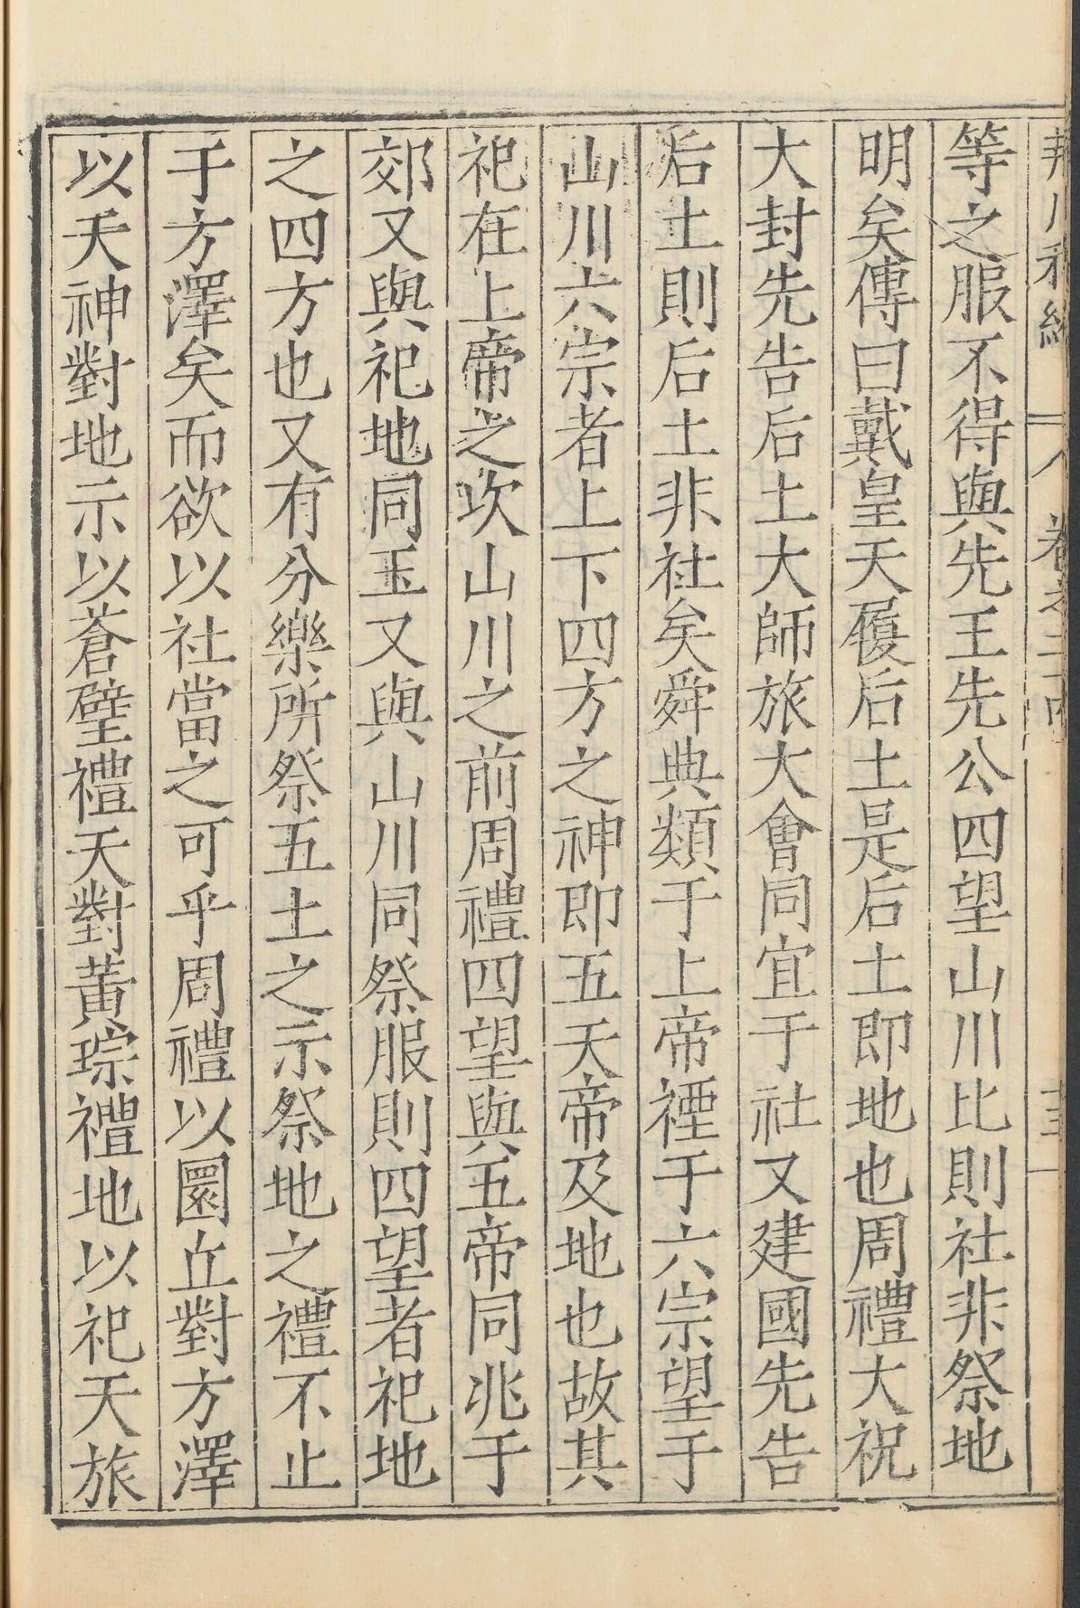 等之服不得與先王先公四望山川比則社非祭地
明矣傳曰戴皇天履后土是后土即地也周禮大祝
大封先告后土大師旅大會同宜于社又建國先告
后土則后土非社矣舜典類于上帝禋于六宗望于
山川六宗者上下四方之神即五天帝及地也故其
祀在上帝之次山川之前周禮四望與五帝同兆于
郊又與祀地同玉又與山川同祭服則四望者祀地
之四方也又有分樂所祭五土之示祭地之禮不止
于方澤矣而欲以社當之可乎周禮以圜丘對方澤
以天神對地示以蒼璧禮天對黃琮禮地以祀天旅